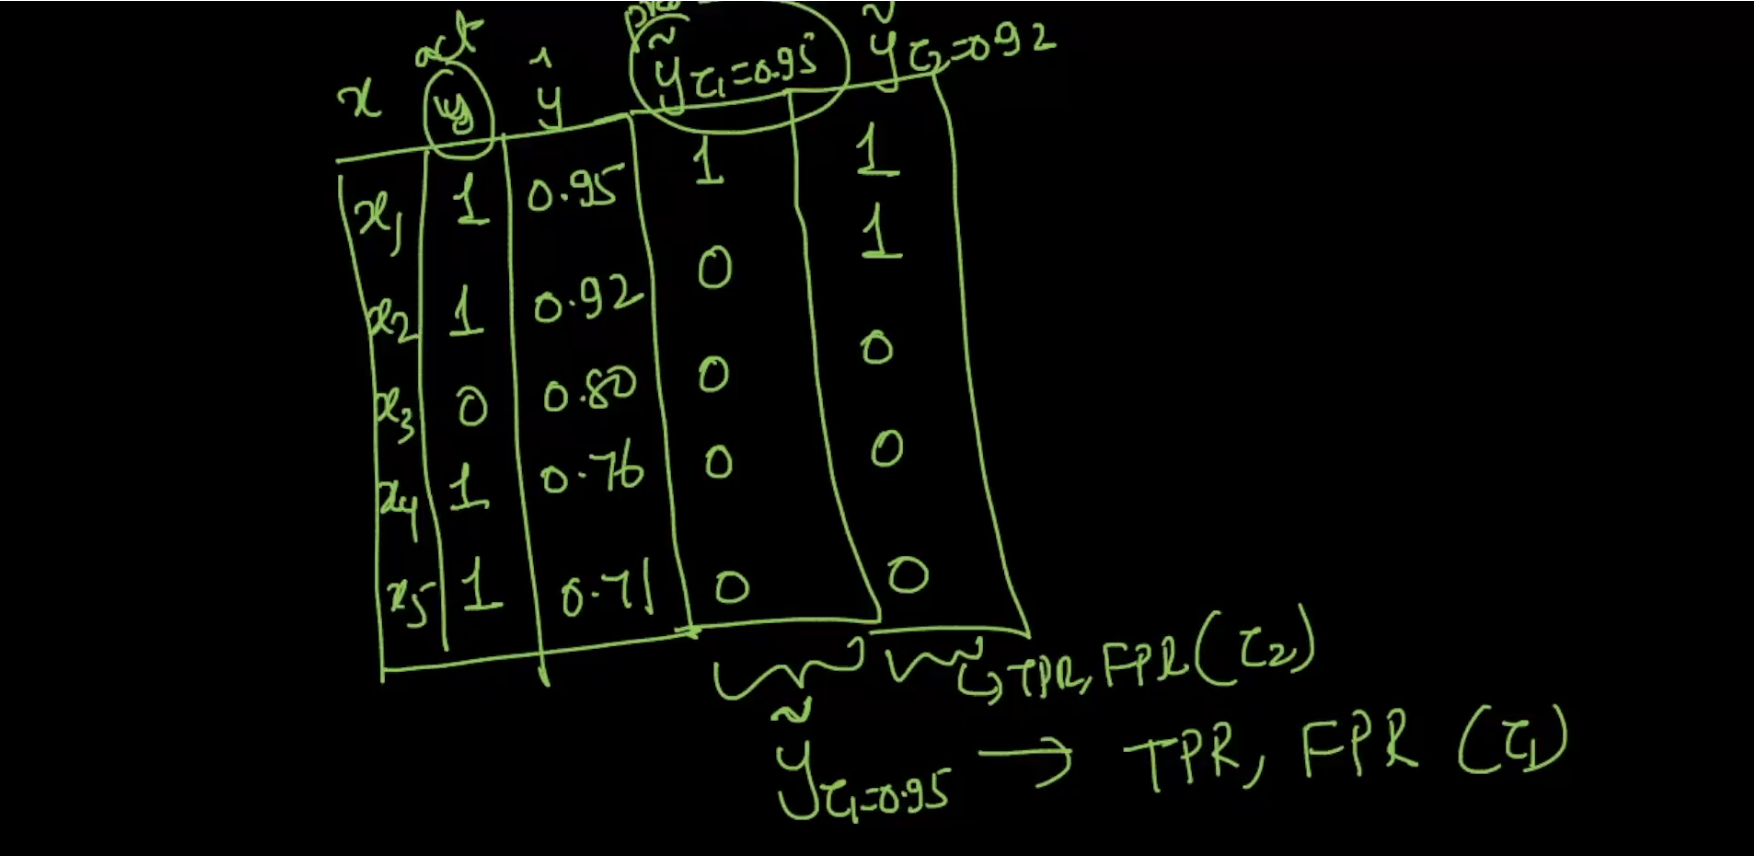 act pred
x y ŷ ỹτ₁=0.95 ỹτ₂=0.92
x₁ 1 0.95 1 1
x₂ 1 0.92 0 1
x₃ 0 0.80 0 0
x₄ 1 0.76 0 0
x₅ 1 0.71 0 0
↳ TPR, FPR (τ₂)
ỹτ₁=0.95 → TPR, FPR (τ₁)